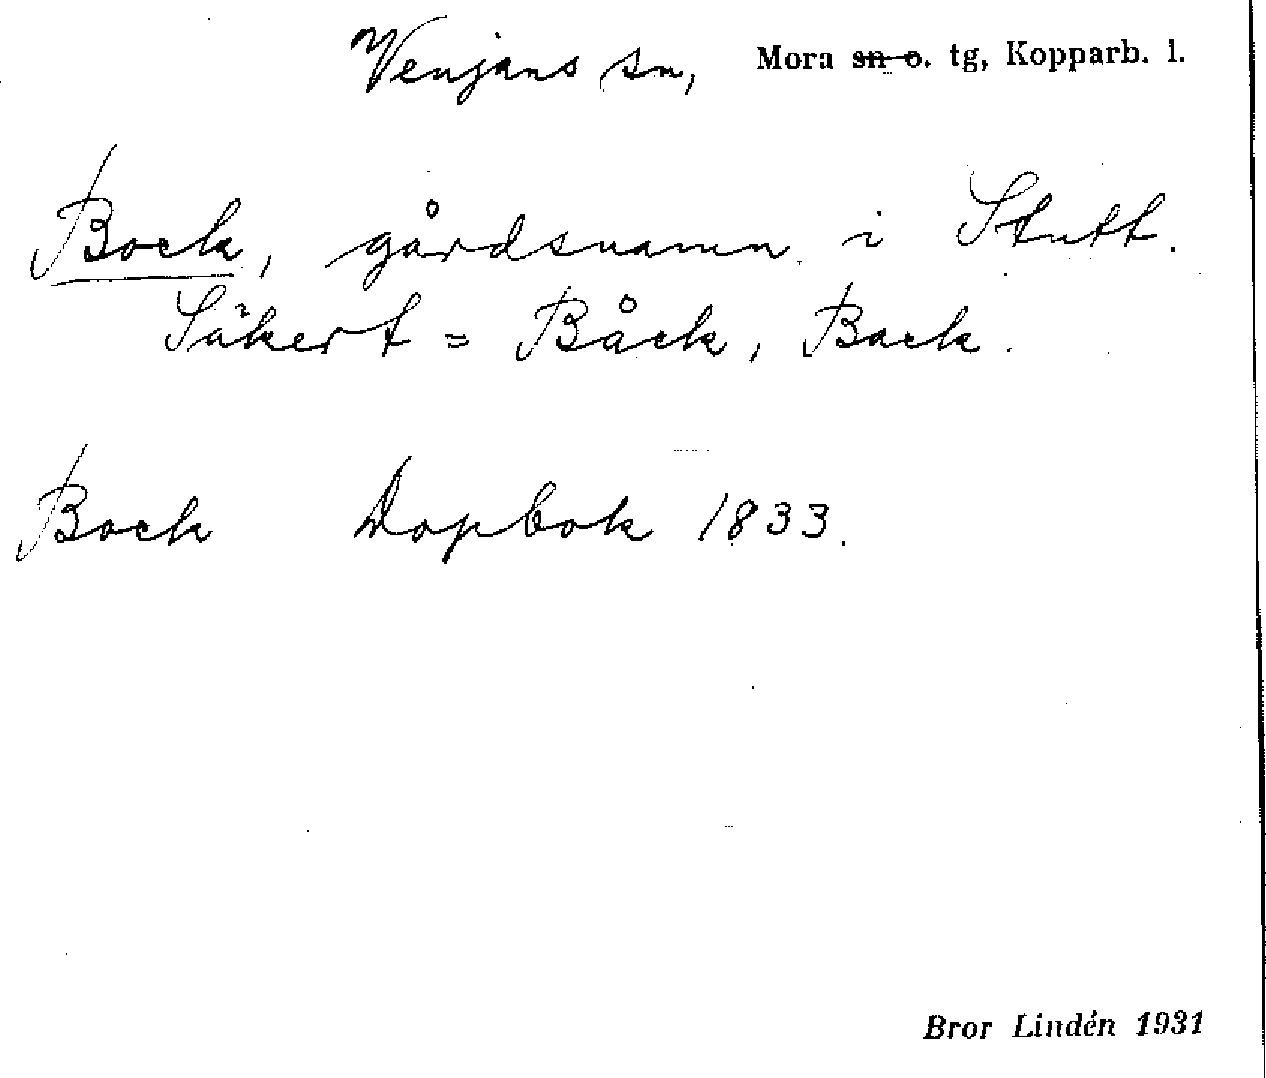 Venjans sn, Mora sn o. tg, Kopparb. l.
Bock, gårdsnamn i Stutt.
Säkert = Båck, Back.
Bock Dopbok 1833.
Bror Lindén 1931